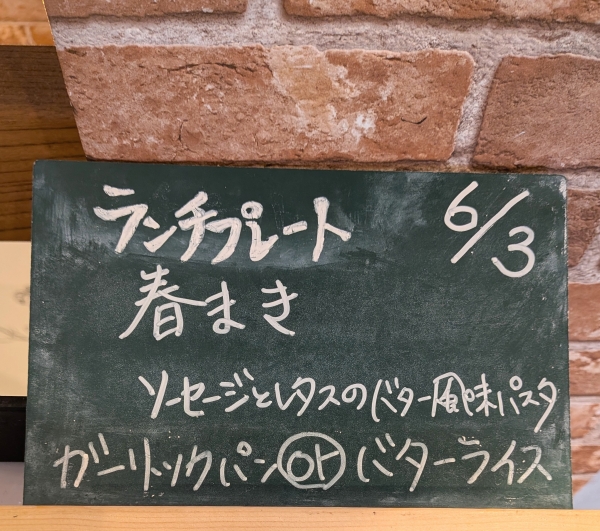 ランチプレート 6/3
春まき
ソーセージとレタスのバター風味パスタ
ガーリックパン or バターライス